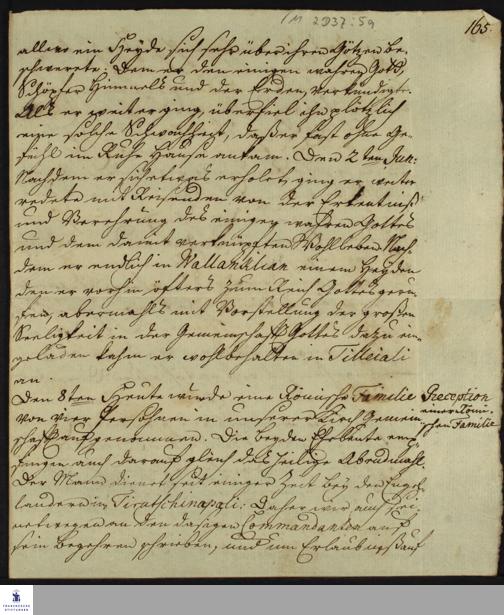 1M 2D37:59
165.
allwo ein Heyde sich sehr über ihren Götzen be-
schwerete. Dem er den einigen wahren Gott,
Schöpfer Himmels und der Erden, verkündigte.
Als er weiter ging, überfiel ihn plötzlich
eine solche Schwachheit, daß er fast ohne Ge-
fühl im Ruhe Hause ankam. Den 2ten Jun:
Nachdem er sich etwas erholet, ging er weiter
redete mit Reisenden von der Erkentniß
und Verehrung des einigen wahren Gottes
und dem damit verknüpften Wohlleben. Nach-
dem er endlich in Wallandilian einem Heyden
den er vorhin öfters zum Reich Gottes geru-
fen, abermahls mit Vorstellung der großen
Seeligkeit in der Gemeinschafft Gottes dazu ein-
geladen kahm er wohlbehalten in Tilleiali
an.
Den 8ten Heute wurde eine Römische Familie
von vier Persohnen in unserer Kirch Gemein-
schafft aufgenommen. Die beyden Eheleute emp-
fingen auch darauf gleich das heilige Abendmahl.
Der Mann dienet seit einiger Zeit bey den Engel-
ländern in Tirutschinapali: Daher wir auch sei-
netwegen an den dasigen Commandanten auf
sein Begehren schrieben, und um Erlaubniß auf
Reception
einer Römi-
schen Familie
FRANCKESCHE
STIFTUNGEN